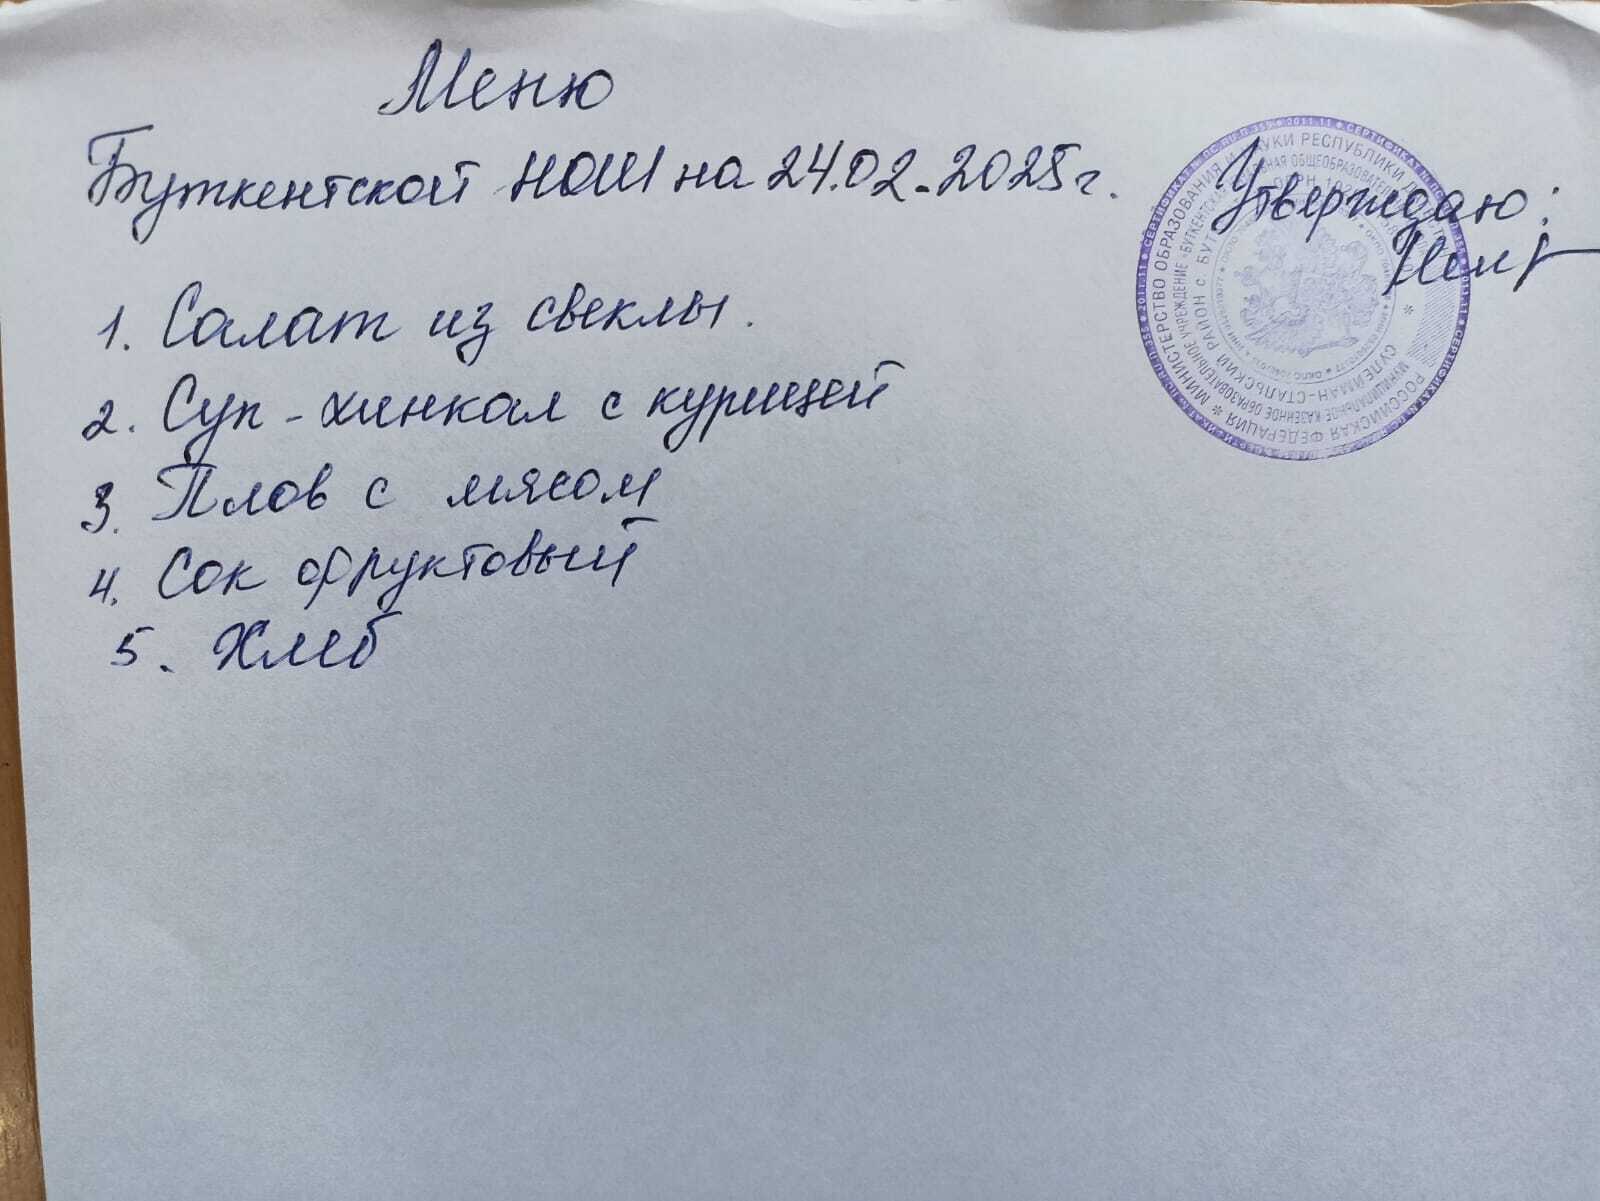 Меню
Буткентской НОШ на 24.02.2025г.
Утверждаю:
1. Салат из свеклы.
2. Суп-хинкал с курицей
3. Плов с мясом
4. Сок фруктовый
5. Хлеб
МИНИСТЕРСТВО ОБРАЗОВАНИЯ И НАУКИ РЕСПУБЛИКИ
РОССИЙСКАЯ ФЕДЕРАЦИЯ
СУЛЕЙМАН-СТАЛЬСКИЙ РАЙОН с.
МУНИЦИПАЛЬНОЕ КАЗЕННОЕ ОБРАЗОВАТЕЛЬНОЕ УЧРЕЖДЕНИЕ "БУТКЕНТСКАЯ